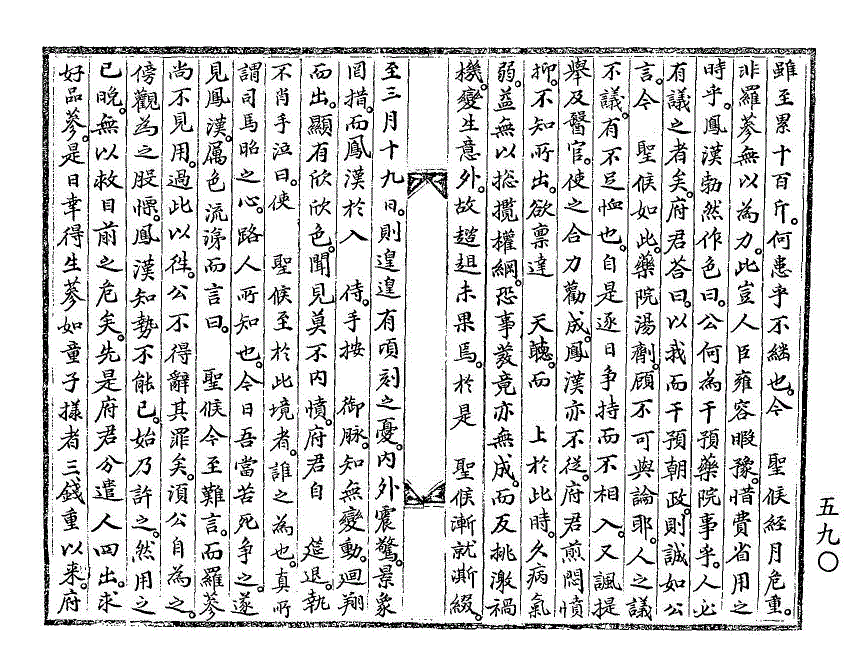 雖至累十百斤。何患乎不繼也。今　聖候經月危重。
非羅蔘無以為力。此豈人臣雍容暇豫。惜貴省用之
時乎。鳳漢勃然作色曰。公何為干預藥院事乎。人必
有議之者矣。府君答曰。以我而干預朝政。則誠如公
言。今　聖候如此。藥院湯劑。顧不可與論耶。人之議
不議。有不足恤也。自是逐日爭持而不相入。又諷提
舉及醫官。使之合力勸成。鳳漢亦不從。府君煎悶憤
抑。不知所出。欲稟達　天聽。而　上於此時。久病氣
弱。益無以摠攬權綱。恐事發竟亦無成。而反挑激禍
機。變生意外。故趑趄未果焉。於是　聖候漸就澌綴。
至三月十九日。則遑遑有頃刻之憂。內外震驚。景象
罔措。而鳳漢於入　侍。手按　御脉。知無變動。廻翔
而出。顯有欣欣色。聞見莫不內憤。府君自　筵退。執
不肖手泣曰。使　聖候至於此境者。誰之為也。真所
謂司馬昭之心。路人所知也。今日吾當苦死爭之。遂
見鳳漢。厲色流涕而言曰。　聖候今至難言。而羅蔘
尚不見用。過此以徃。公不得辭其罪矣。湏公自為之。
傍觀為之股慄。鳳漢知勢不能已。始乃許之。然用之
已晚。無以救目前之危矣。先是府君分遣人四出。求
好品蔘。是日幸得生蔘如童子㨾者三錢重以來。府
五九〇